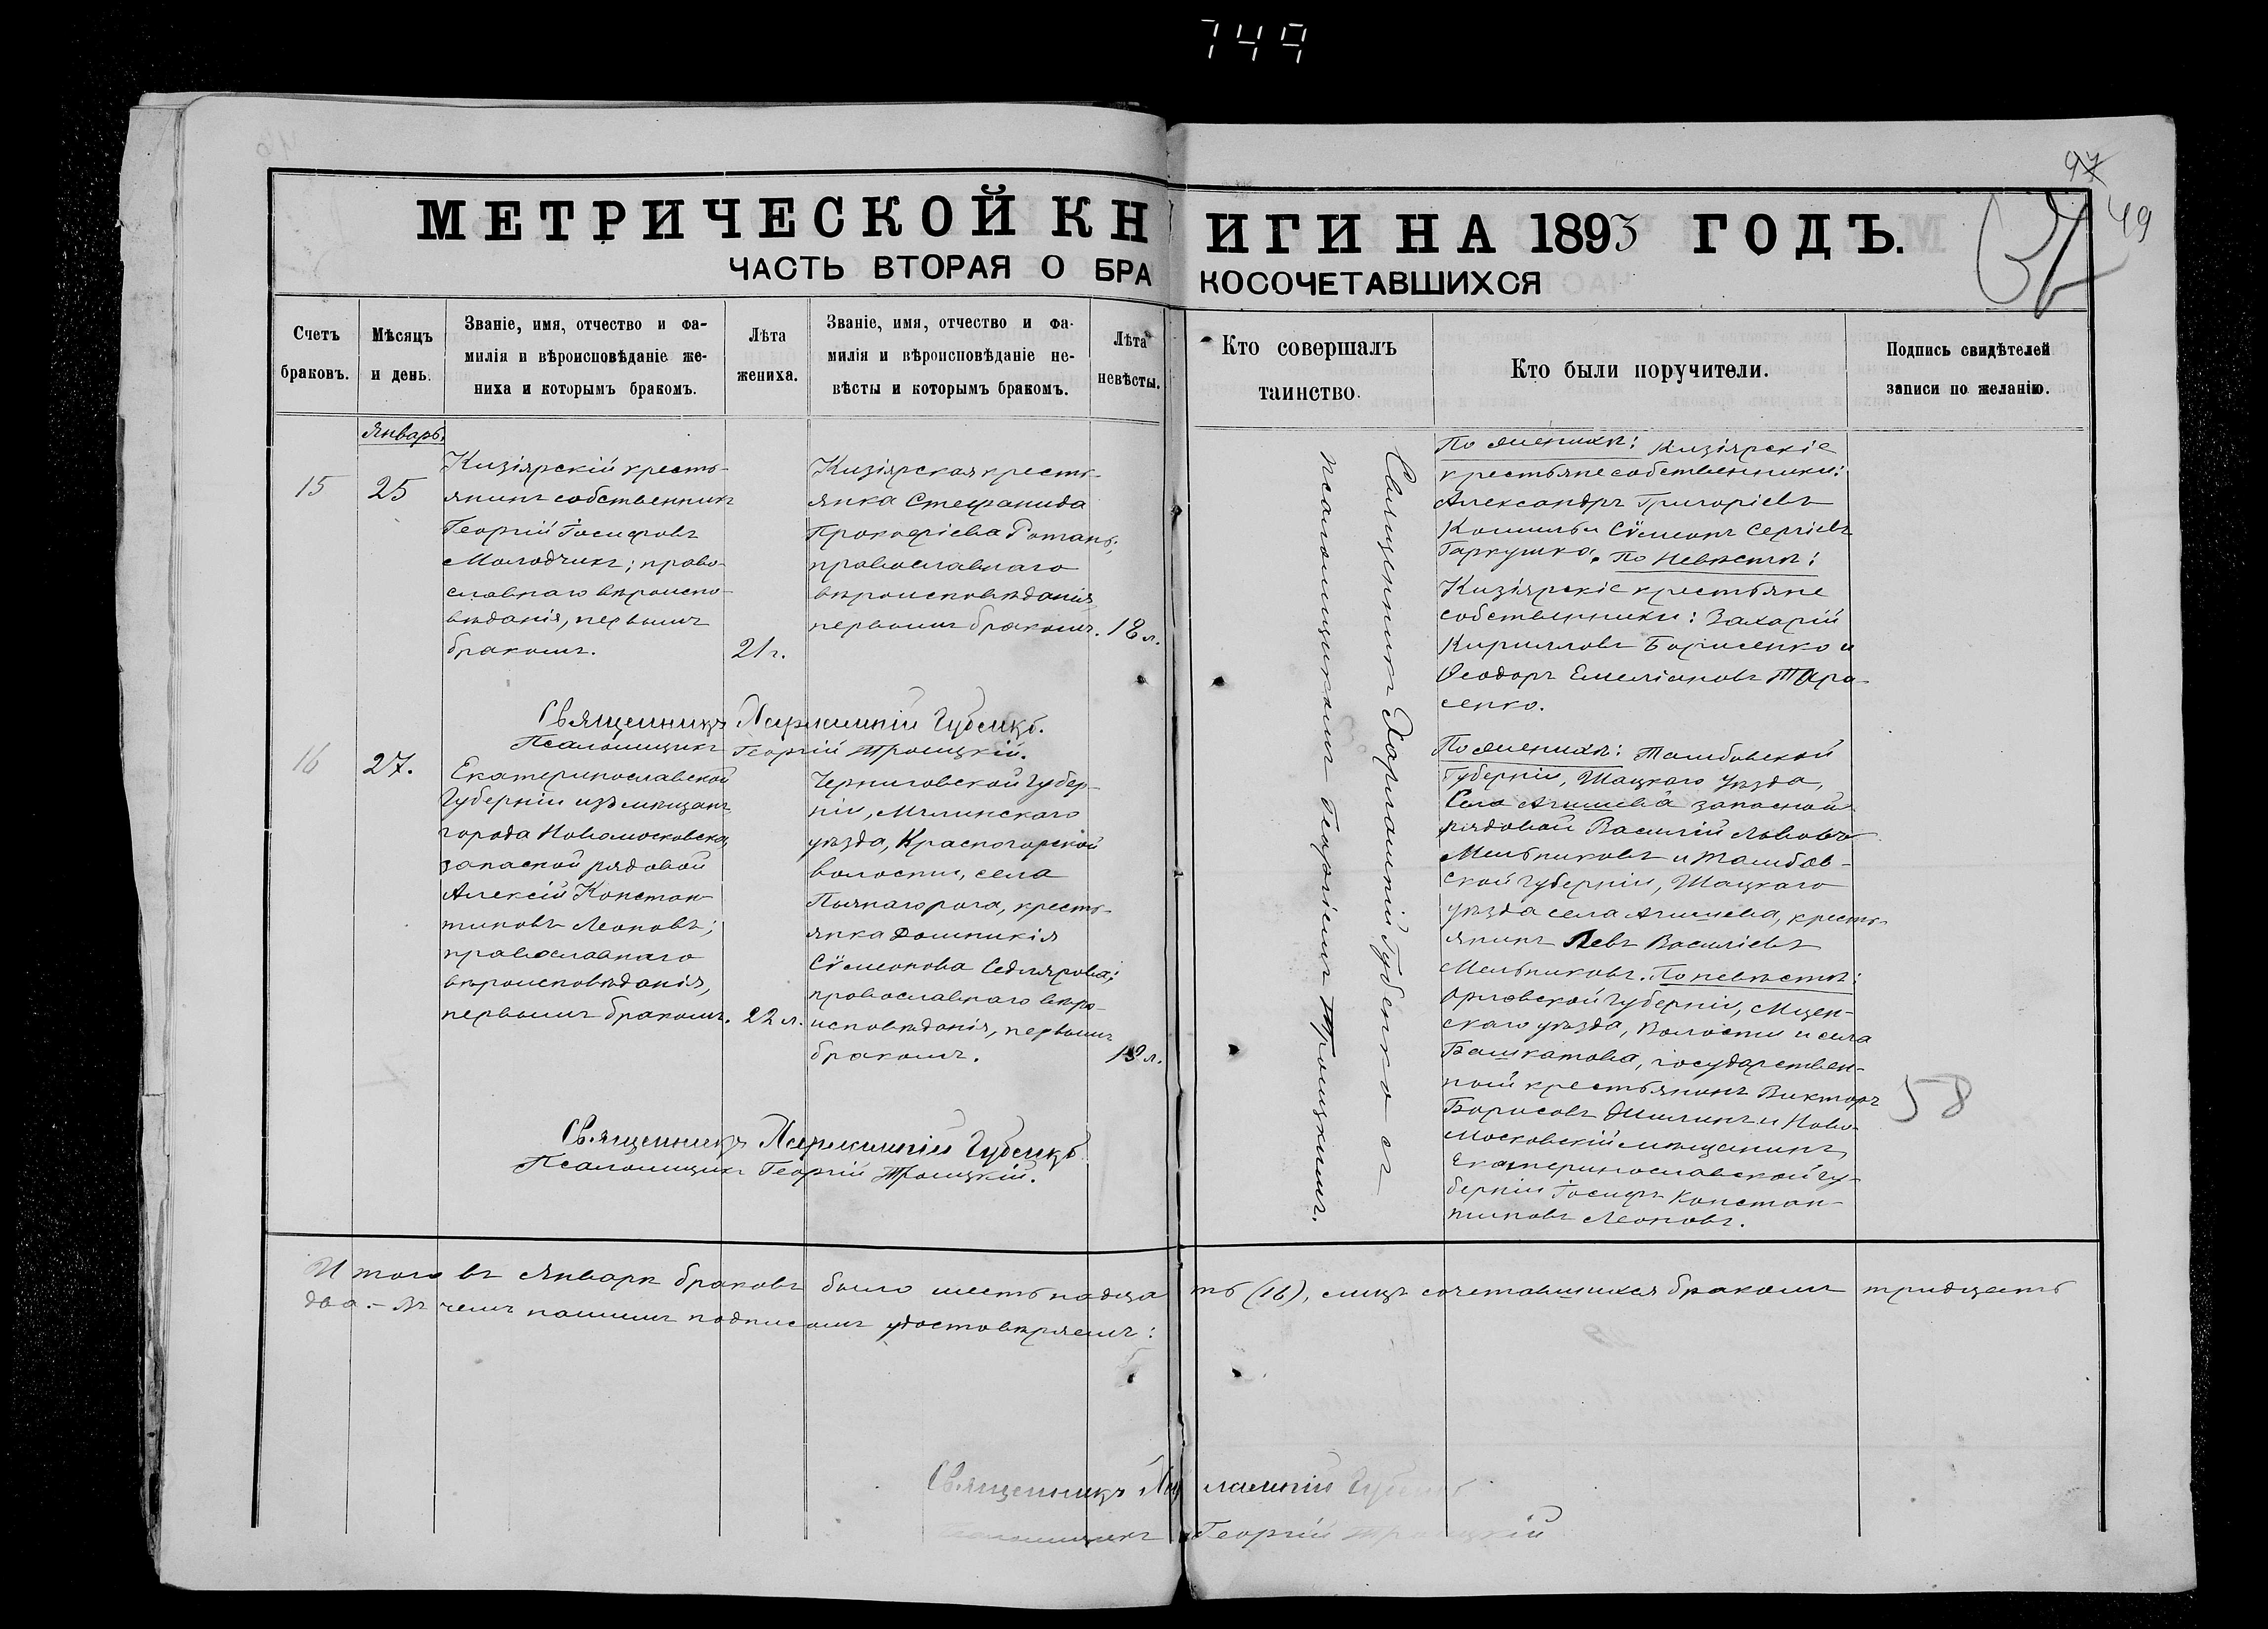 747
97
49
МЕТРИЧЕСКОЙ КНИГИ НА 1893 ГОДЪ.
ЧАСТЬ ВТОРАЯ О БРАКОСОЧЕТАВШИХСЯ
Счетъ
браковъ.
Мѣсяцъ
и день.
Званіе, имя, отчество и фа-
милія и вѣроисповѣданіе же-
ниха и которымъ бракомъ.
Лѣта
жениха.
Званіе, имя, отчество и фа-
милія и вѣроисповѣданіе не-
вѣсты и которымъ бракомъ.
Лѣта
невѣсты.
Кто совершалъ
таинство.
Кто были поручители.
Подпись свидѣтелей
записи по желанію.
Январь.
15
25
Кизіярскій кресть-
янинъ собственникъ
Георгій Іосифовъ
Молодчикъ; право-
славнаго вѣроиспо-
вѣданія, первымъ
бракомъ.
21 г.
Кизіярская кресть-
янка Стефанида
Прокофіева Ротань,
православнаго
вѣроисповѣданія
первымъ бракомъ.
18 л.
По женихѣ: Кизіярскіе
крестьяне собственники:
Александръ Григоріевъ
и Сѵмеонъ Сергіевъ
Гаркушко. По невѣстѣ:
Кизіярскіе крестьяне
собственники: Захарій
Кирилловъ Борисенко и
Ѳеодоръ Емеліановъ Тара-
сенко.
Священникъ Харлампій Губенко.
Псаломщикъ Георгій Троицкій.
16
27.
Екатеринославской
Губерніи изъ мѣщанъ
города Новомосковска,
запасной рядовой
Алексій Констан-
тиновъ Леоновъ;
православнаго
вѣроисповѣданія,
первымъ бракомъ.
22 л.
Черниговской Губер-
ніи, Мглинскаго
уѣзда, Красногорской
волости, села
кресть-
янка Домникія
Сѵмеонова Седлярова;
православнаго вѣро-
исповѣданія, первымъ
бракомъ.
19 л.
Священникъ Харлампій Губенко съ
псаломщикомъ Георгіемъ Троицкимъ.
По женихѣ: Тамбовской
Губерніи, Шацкаго Уѣзда,
Села Агишева запасной
рядовой Василій Львовъ
Мельниковъ и Тамбов-
ской Губерніи, Шацкаго
уѣзда села Агишева, кресть-
янинъ Левъ Василіевъ
Мельниковъ. По невѣстѣ:
Орловской Губерніи, Мцен-
скаго уѣзда, Волости и села
Башкатова, государствен-
ной крестьянинъ Викторъ
Борисовъ Жилинъ и Ново-
московскій мѣщанинъ,
Екатеринославской Гу-
берніи Іосифъ Констан-
тиновъ Леоновъ.
58
Священникъ Харлампій Губенко.
Псаломщикъ Георгій Троицкій.
Итого въ Январѣ браковъ было шестьнадцать (16), лицъ сочетавшихся бракомъ тридцать
два. – Въ чемъ нашимъ подписомъ удостовѣряемъ:
Священникъ Харлампій Губенко
Псаломщикъ Георгій Троицкій